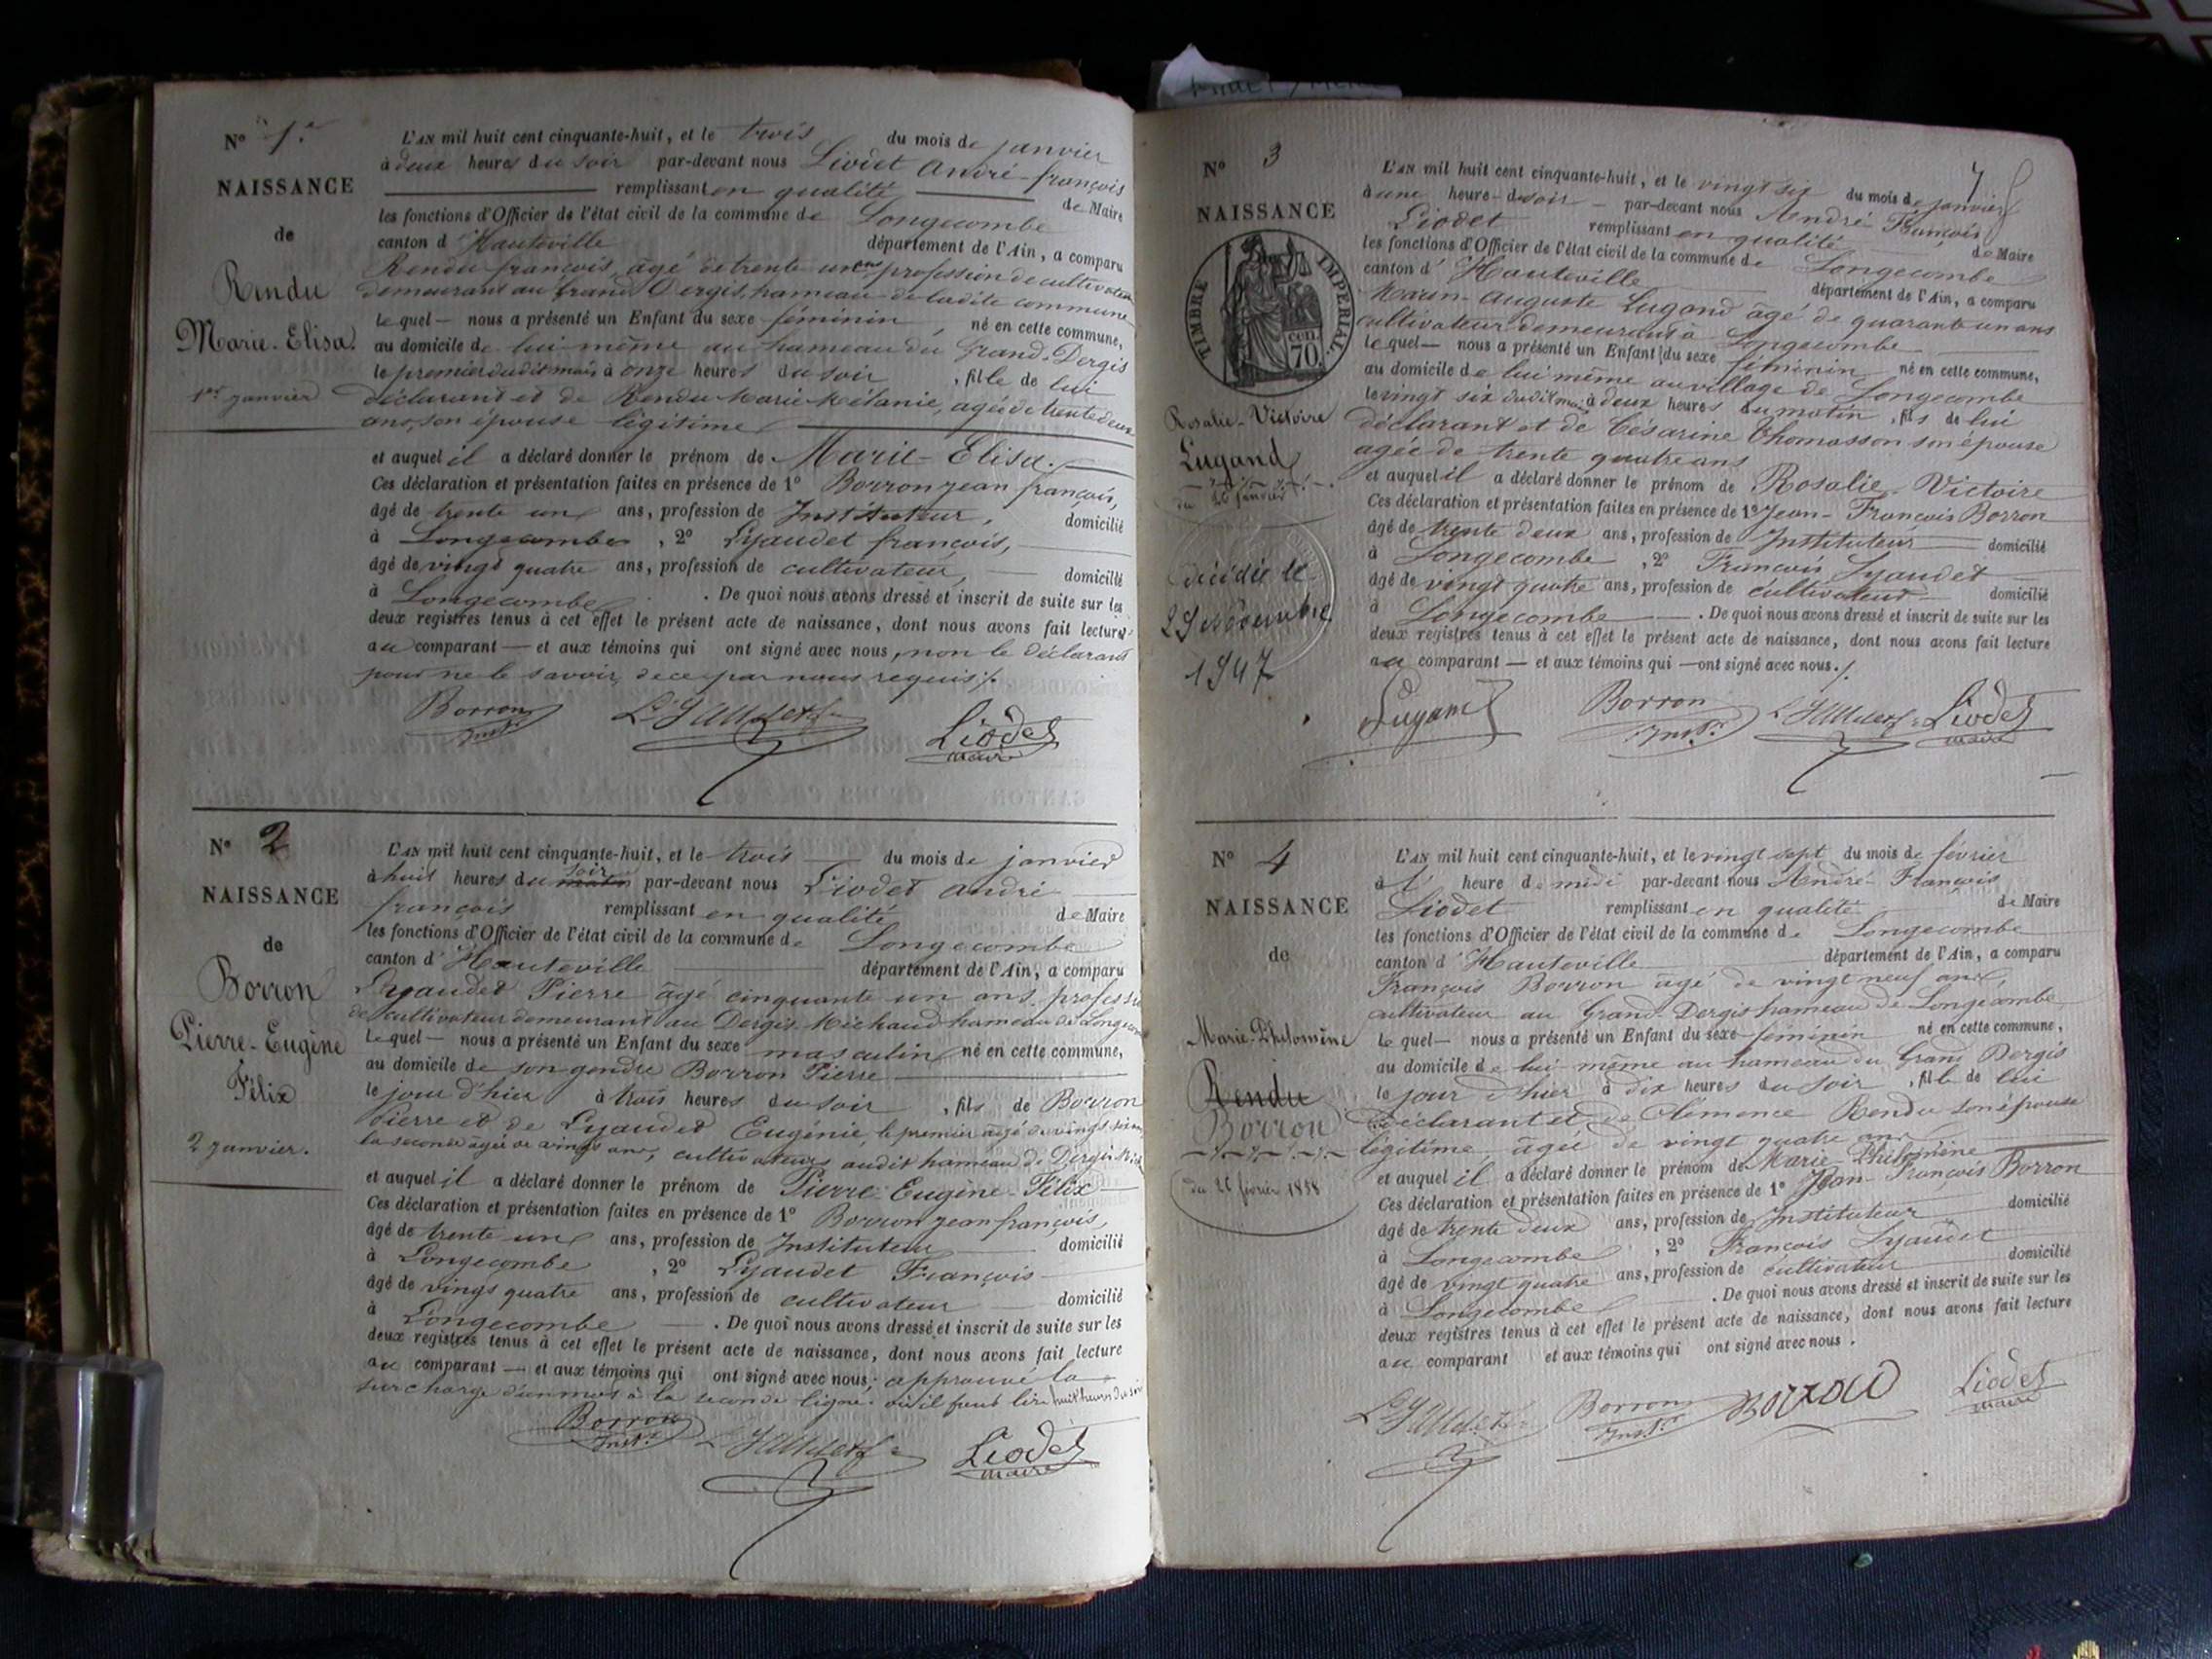 N° 1.er
NAISSANCE
de
Rendu
Marie-Elisa.
1er janvier
L'AN mil huit cent cinquante-huit, et le trois du mois de janvier
à deux heures du soir par-devant nous Liodet André-françois
remplissant en qualité de Maire
les fonctions d'Officier de l'état civil de la commune de Longecombe
canton d'Hauteville département de l'Ain, a comparu
Rendu françois, âgé de trente un ans profession de cultivateur
demeurant au Grand Dergis, hameau de ladite commune
lequel — nous a présenté un Enfant du sexe féminin, né en cette commune,
au domicile de lui-même au hameau du Grand-Dergis
le premier dudit mois, à onze heures du soir, fille de lui
déclarant et de Rendu Marie Mélanie, agée de trente deux
ans, son épouse légitime
et auquel il a déclaré donner le prénom de Marie-Elisa.
Ces déclaration et présentation faites en présence de 1° Borron jean françois,
âgé de trente un ans, profession de Instituteur, domicilié
à Longecombe, 2° Lyaudet françois,
âgé de vingt quatre ans, profession de cultivateur, domicilié
à Longecombe. De quoi nous avons dressé et inscrit de suite sur les
deux registres tenus à cet effet le présent acte de naissance, dont nous avons fait lecture
au comparant — et aux témoins qui ont signé avec nous, non le déclarant
pour ne le savoir, de ce par nous requis ./.
Borron Lyaudet f. Liodet
Inst.r maire
N° 2
NAISSANCE
de
Borron
Pierre-Eugène
Félix
2 janvier.
L'AN mil huit cent cinquante-huit, et le trois du mois de janvier
soir
à huit heures du matin par-devant nous Liodet André
françois remplissant en qualité de Maire
les fonctions d'Officier de l'état civil de la commune de Longecombe
canton d'Hauteville département de l'Ain, a comparu
Lyaudet Pierre âgé cinquante un ans, profession
de cultivateur demeurant au Dergis-Michaud hameau de Longecombe
lequel — nous a présenté un Enfant du sexe masculin né en cette commune,
au domicile de son gendre Borron Pierre
le jour d'hier à trois heures du soir, fils de Borron
Pierre et de Lyaudet Eugénie, le premier âgé de vingt
la seconde âgée de vingt ans, cultivateurs audit hameau de Dergis
et auquel il a déclaré donner le prénom de Pierre-Eugène-Félix
Ces déclaration et présentation faites en présence de 1° Borron jean françois,
âgé de trente un ans, profession de Instituteur domicilié
à Longecombe, 2° Lyaudet François
âgé de vingt quatre ans, profession de cultivateur domicilié
à Longecombe. De quoi nous avons dressé et inscrit de suite sur les
deux registres tenus à cet effet le présent acte de naissance, dont nous avons fait lecture
au comparant — et aux témoins qui ont signé avec nous; approuvé la
surcharge d'un mot à la seconde ligne: où il faut lire huit heures du soir
Borron Lyaudet f. Liodet
Inst.r maire
N° 3
NAISSANCE
TIMBRE IMPERIAL.
70 cen.
Rosalie-Victoire
Lugand
du 26 janvier
décédée le
29 Novembre
1947
L'AN mil huit cent cinquante-huit, et le vingt six du mois de janvier
à une heure du soir — par-devant nous André François
Liodet remplissant en qualité de Maire
les fonctions d'Officier de l'état civil de la commune de Longecombe
canton d'Hauteville département de l'Ain, a comparu
Marin-Auguste Lugand âgé de quarante un ans
cultivateur demeurant à Longecombe
lequel — nous a présenté un Enfant du sexe féminin né en cette commune,
au domicile de lui même au village de Longecombe
le vingt six dudit mois à deux heures du matin, fils de lui
déclarant et de Césarine Thomasson son épouse
agée de trente quatre ans
et auquel il a déclaré donner le prénom de Rosalie Victoire
Ces déclaration et présentation faites en présence de 1° Jean-François Borron
âgé de trente deux ans, profession de Instituteur domicilié
à Longecombe, 2° François Lyaudet
âgé de vingt quatre ans, profession de cultivateur domicilié
à Longecombe. De quoi nous avons dressé et inscrit de suite sur les
deux registres tenus à cet effet le présent acte de naissance, dont nous avons fait lecture
au comparant — et aux témoins qui — ont signé avec nous ./.
Lugand Borron Lyaudet f. Liodet
Inst.r maire
N° 4
NAISSANCE
de
Marie-Philomène
Rendu
Borron
du 26 février 1858
L'AN mil huit cent cinquante-huit, et le vingt sept du mois de février
à 1 heure de midi par-devant nous André François
Liodet remplissant en qualité de Maire
les fonctions d'Officier de l'état civil de la commune de Longecombe
canton d'Hauteville département de l'Ain, a comparu
François Borron âgé de vingt neuf ans,
cultivateur au Grand-Dergis hameau de Longecombe
lequel — nous a présenté un Enfant du sexe féminin né en cette commune,
au domicile de lui même au hameau du Grand Dergis
le jour d'hier à dix heures du soir, fille de lui
déclarant et de Clémence Rendu son épouse
légitime, âgée de vingt quatre ans
et auquel il a déclaré donner le prénom de Marie-Philomène
Ces déclaration et présentation faites en présence de 1° Jean-François Borron
âgé de trente deux ans, profession de Instituteur domicilié
à Longecombe, 2° François Lyaudet
âgé de vingt quatre ans, profession de cultivateur domicilié
à Longecombe. De quoi nous avons dressé et inscrit de suite sur les
deux registres tenus à cet effet le présent acte de naissance, dont nous avons fait lecture
au comparant et aux témoins qui ont signé avec nous.
Lyaudet f. Borron Borron Liodet
Inst.r maire